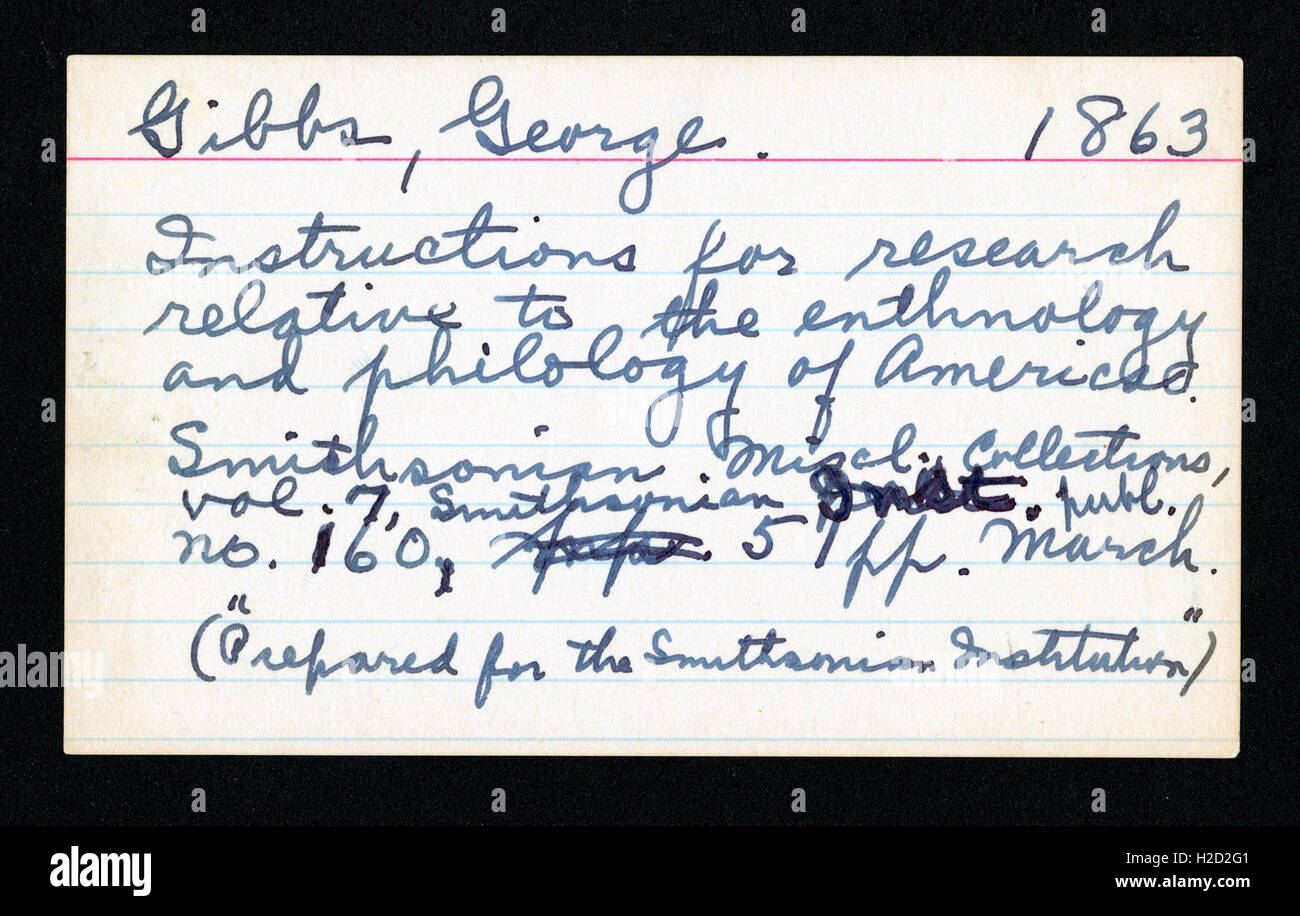 Gibbs, George. 1863
Instructions for research
relative to the enthnology
and philology of America.
Smithsonian Miscl. Collections,
vol. 7, Smithsonian Inst. publ.
no. 160, 51pp. March.
("Prepared for the Smithsonian Institution")
alamy
H2D2G1
www.alamy.com